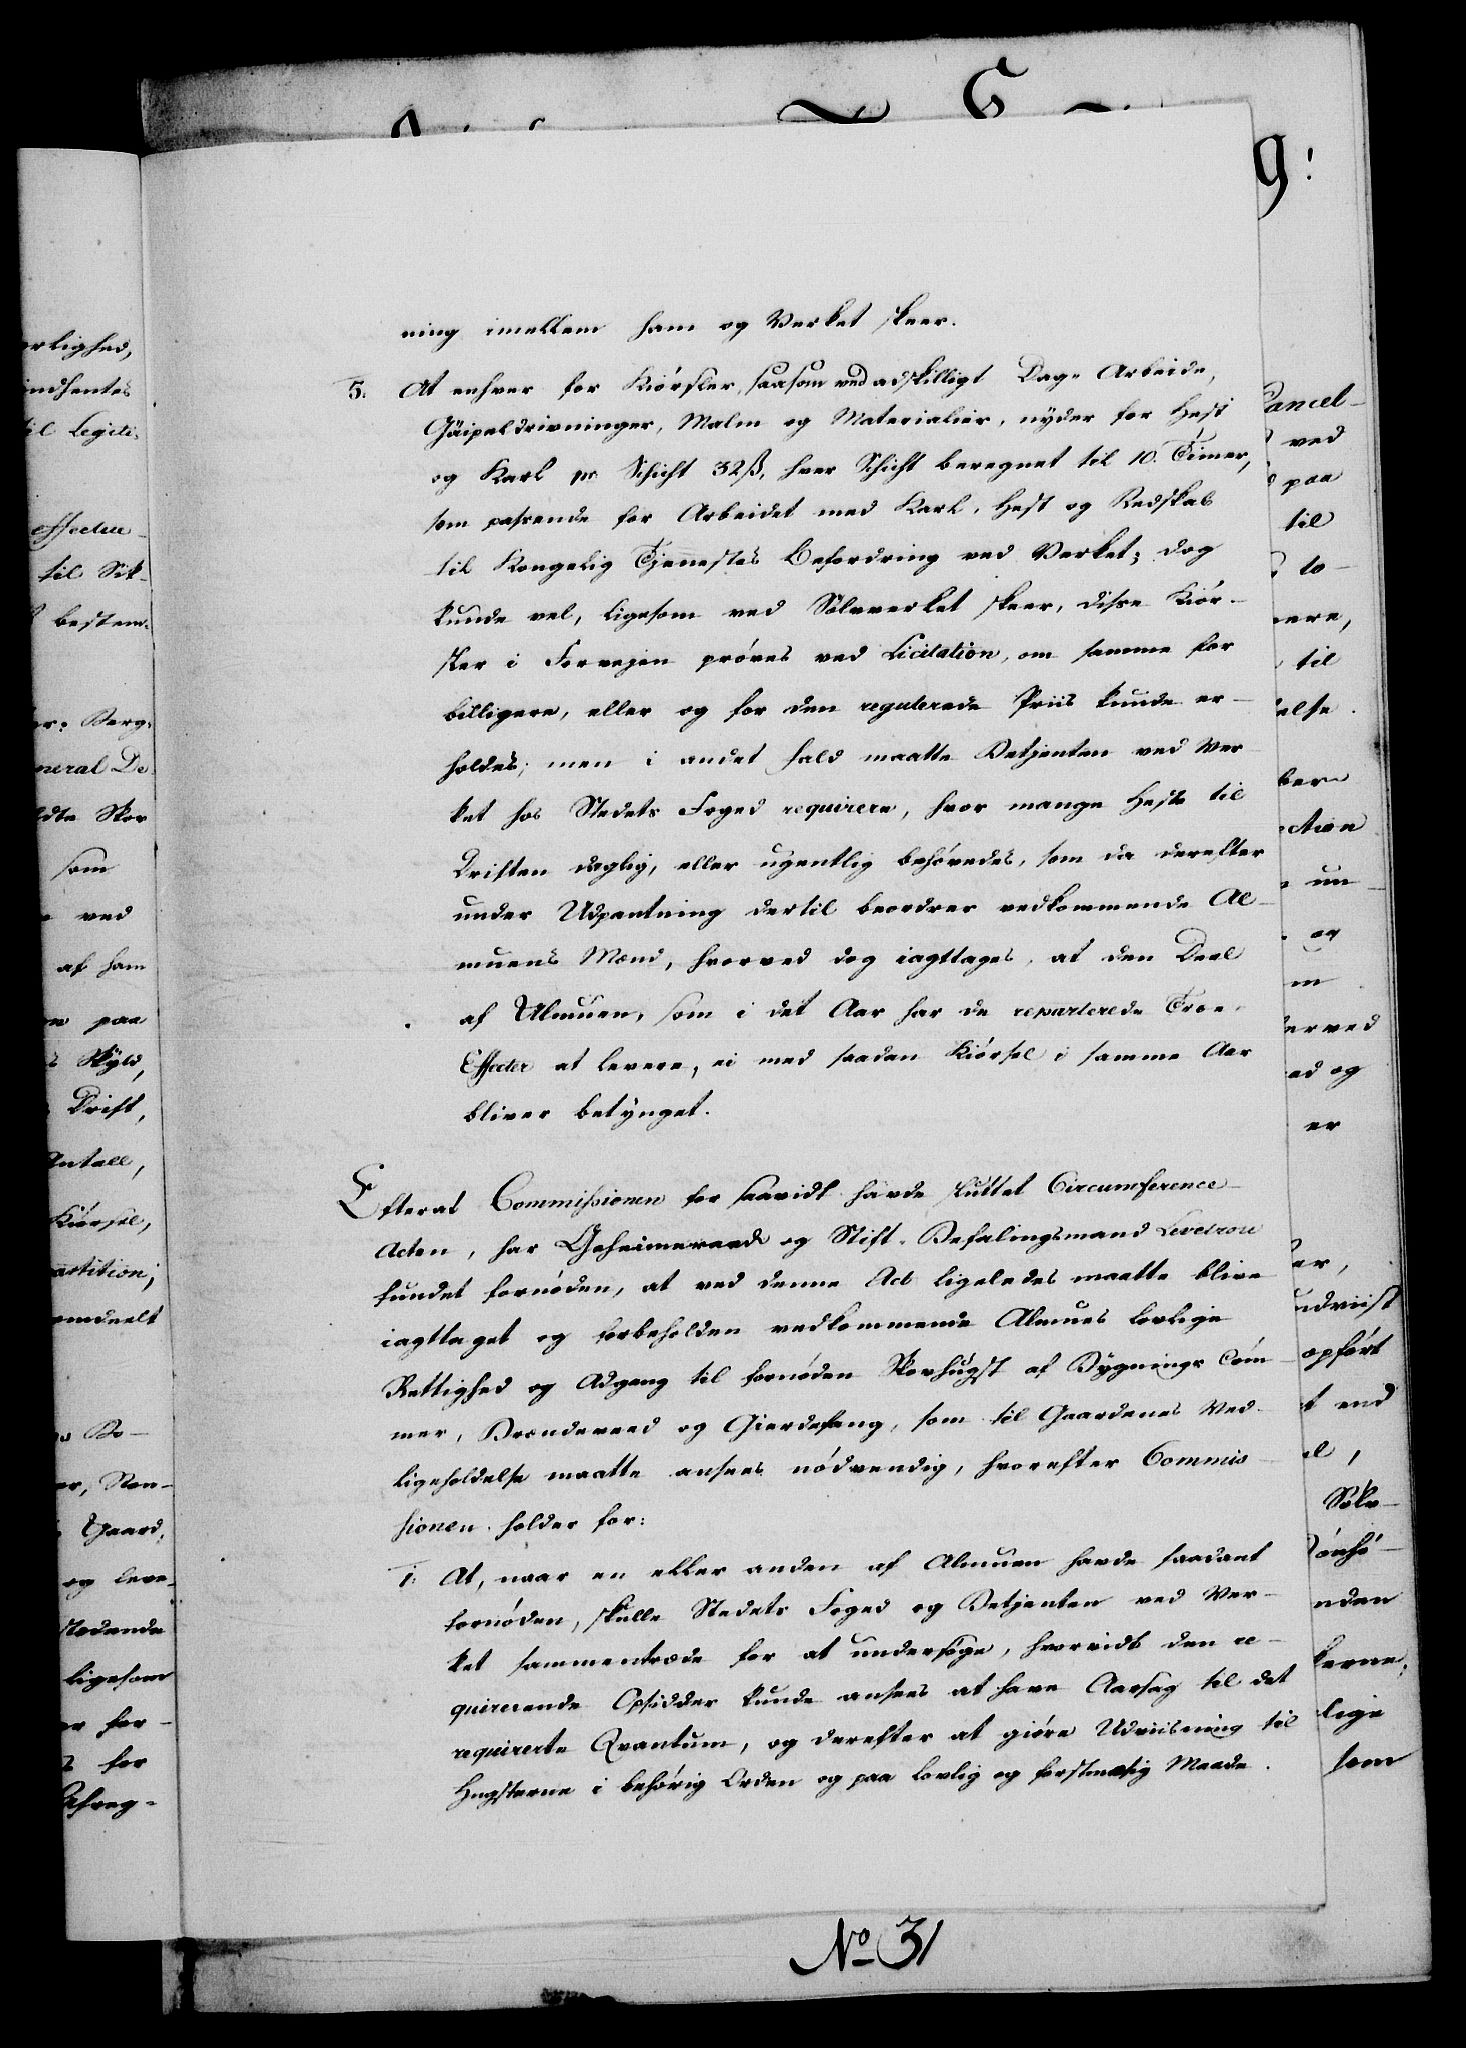 ning imellem ham og Verket skeer.
5. At enhver for Kiörsler, saasom ved adskilligt Dag= Arbeide,
Gäipeldrivninger, Malm og Materialier, nyder for Hest
og Karl pr Schicht 32ß, hver Schicht beregnet til 10. Timer,
som passende for Arbeidet med Karl, Hest og Redskab
til Kongelig Tjenestes Befordring ved Verket; dog
kunde vel, ligesom ved Sölvverket skeer, disse Kiör-
sler i Forvejen pröves ved Licitation, om samme for
billigere, eller og for den regulerede Priis kunde er-
holdes; men i andet Fald maatte Betjenten ved Ver
ket hos Stedets Foged requirere, hvor mange Heste til
Driften daglig, eller ugentlig behövedes, som da derefter
under Udpantning dertil beordrer vedkommende Al-
muens Mænd, hvorved dog iagttages, at den Deel
af Almuen, som i det Aar har de reparterede Træe-
Effecter at levere, ei med saadan Kiörsel i samme Aar
bliver betynget.
Efterat Commissionen for saavidt havde sluttet Circumference-
Acten, har Geheimeraad og Stift-Befalingsmand Levetzow
fundet fornöden, at ved denne Act ligeledes maatte blive
iagttaget og forbeholden vedkommende Almues lovlige
Rettighed og Adgang til fornöden Skovhugst af Bygnings Töm-
mer, Brændeveed og Gierdefang, som til Gaardenes Ved-
ligeholdelse maatte ansees nödvendig, hvorefter Commis-
sionen holder for:
1: At, naar en eller anden af Almuen havde saadant
fornöden, skulle Stedets Foged og Betjenten ved Ver-
ket sammentræde for at undersöge, hvorvidt den re-
quirerende Opsidder kunde ansees at have Aarsag til det
requirerte Qvantum, og derefter at giöre Udviisning til
Hugsterne i behörig Orden og paa lovlig og forstmæsig Maade.
No 31